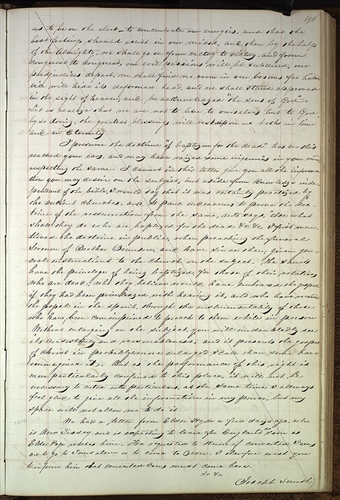 190
us to be on the alert to concentrate our energies, and that the
best feelings should exist in our midst, and then by the help
of the Almighty, we shall go on from victory to victory, and from
conquest to conquest, our evil passions will be subdued, our
prejudices depart, we shall find no room in our bosoms for hatred,
vice will hide its deformed head, and we shall stand approved
in the sight of heaven and be acknowledged "the sons of God".
Let us realize that we are not to live to ourselves but to God
by so doing the greatest blessings will rest upon us both in time
and in Eternity.
I presume the doctrine of "baptism for the dead" has ere this
reached your ears, and may have raised some inquiries in your mind
respecting the same. I cannot in this letter give you all the information
you may desire on the subject, but aside from knowledge inde-
pendent of the bible, I would say that it was certainly practized by
the antient churches and St Paul endeavors to prove the doc-
trine of the resurrection from the same, and says else what
shall they do who are baptized for the dead &c &c. I first men-
tioned the doctrine in public when preaching the funeral
sermon of Brother Brunson, and have since then given gen-
eral instructions to the Church on the subject. The Saints
have the privilege of being baptized for those of their relatives
who are dead, who they believe would have embraced the gospel
if they had been priviledged with hearing it, and who have received
the gospel in the spirit through the instrumentality of those
who have been commissioned to preach to them while in prison.
Without enlarging on the subject you will undoubtedly see
its consistency and reasonableness, and it presents the gospel
of Christ in probably a more enlarged scale than some have
immagined it. But as the performance of this right is
more particularly confined to this place, it will not be
necessary to enter into particulars, at the same time I always
feel glad to give all the information in my power, but my
space will not allow me to do it.
We had a letter from Elder Hyde a few days ago, who
is in New Jersey and is expecting to leave for England soon as
Elder Page reaches him. He requested to know if converted Jews
are to go to Jerusalem or to come to Zion. I therefore wish you
to inform him that converted Jews must come here.
&c &c
Joseph Smith